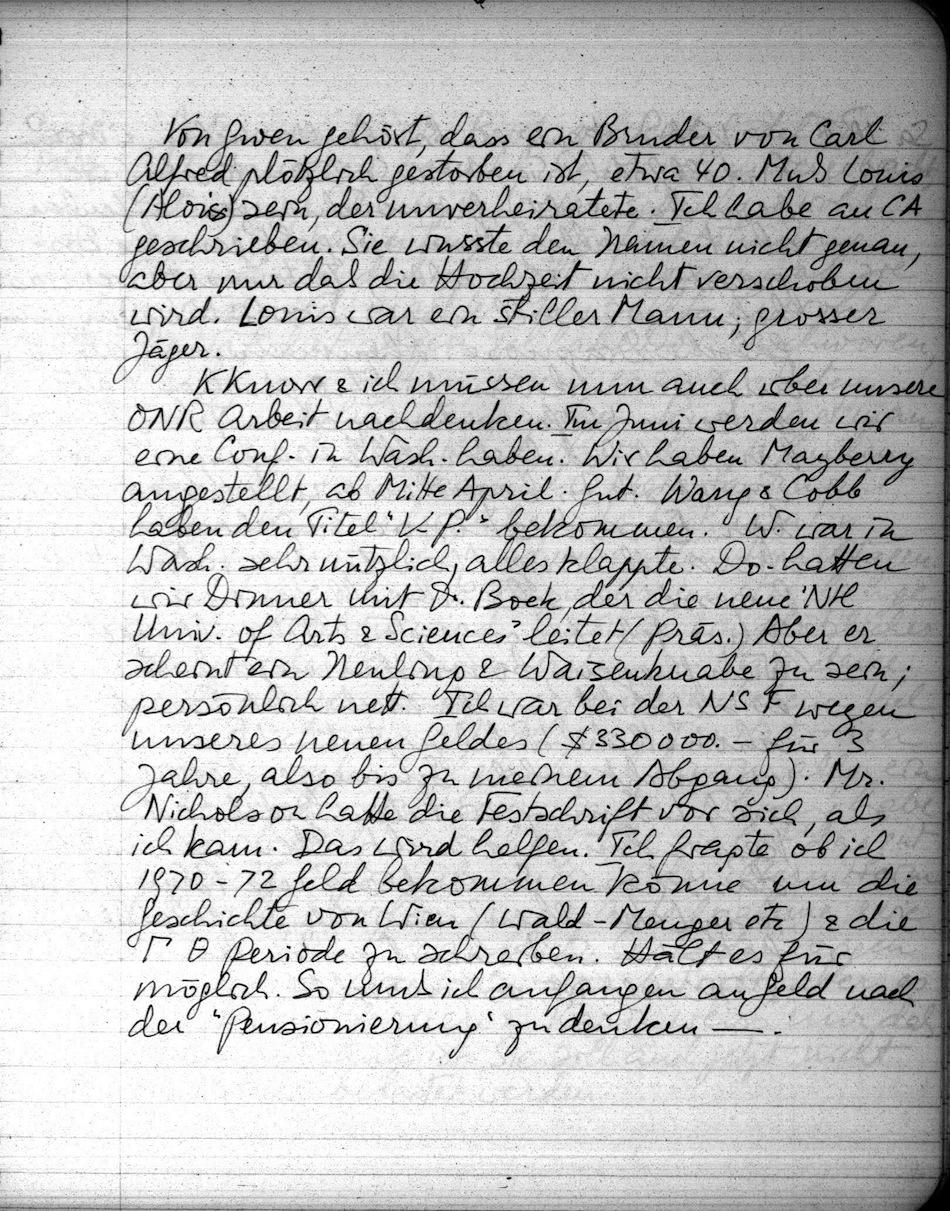 Von Gwen gehört, dass ein Bruder von Carl
Alfred plötzlich gestorben ist, etwa 40. Muß Louis
(Alois) sein, der unverheiratete. Ich habe an CA
geschrieben. Sie wusste den Namen nicht genau,
aber nur daß die Hochzeit nicht verschoben
wird. Louis war ein stiller Mann; grosser
Jäger.
K Knorr & ich müssen nun auch über unsere
ONR Arbeit nachdenken. Im Juni werden wir
eine Conf. in Wash. haben. Wir haben Mayberry
angestellt, ab Mitte April. Gut. Wang & Cobb
haben den Titel "V.P." bekommen. W. war in
Wash. sehr nützlich, alles klappte. Do. hatten
wir Dinner mit D. Boek, der die neue 'NH
Univ. of Arts & Sciences' leitet (Präs.) Aber er
scheint ein Neuling & Waisenknabe zu sein;
persönlich nett. Ich war bei der NSF wegen
unseres neuen Geldes ($330000.– für 3
Jahre, also bis zu meinem Abgang). Mr.
Nicholson hatte die Festschrift vor sich, als
ich kam. Das wird helfen. Ich fragte ob ich
1970-72 Geld bekommen könne um die
Geschichte von Wien (Wald-Menger etc) & die
Γ Θ Periode zu schreiben. Hält es für
möglich. So muß ich anfangen an Geld nach
der "Pensionierung" zu denken —.